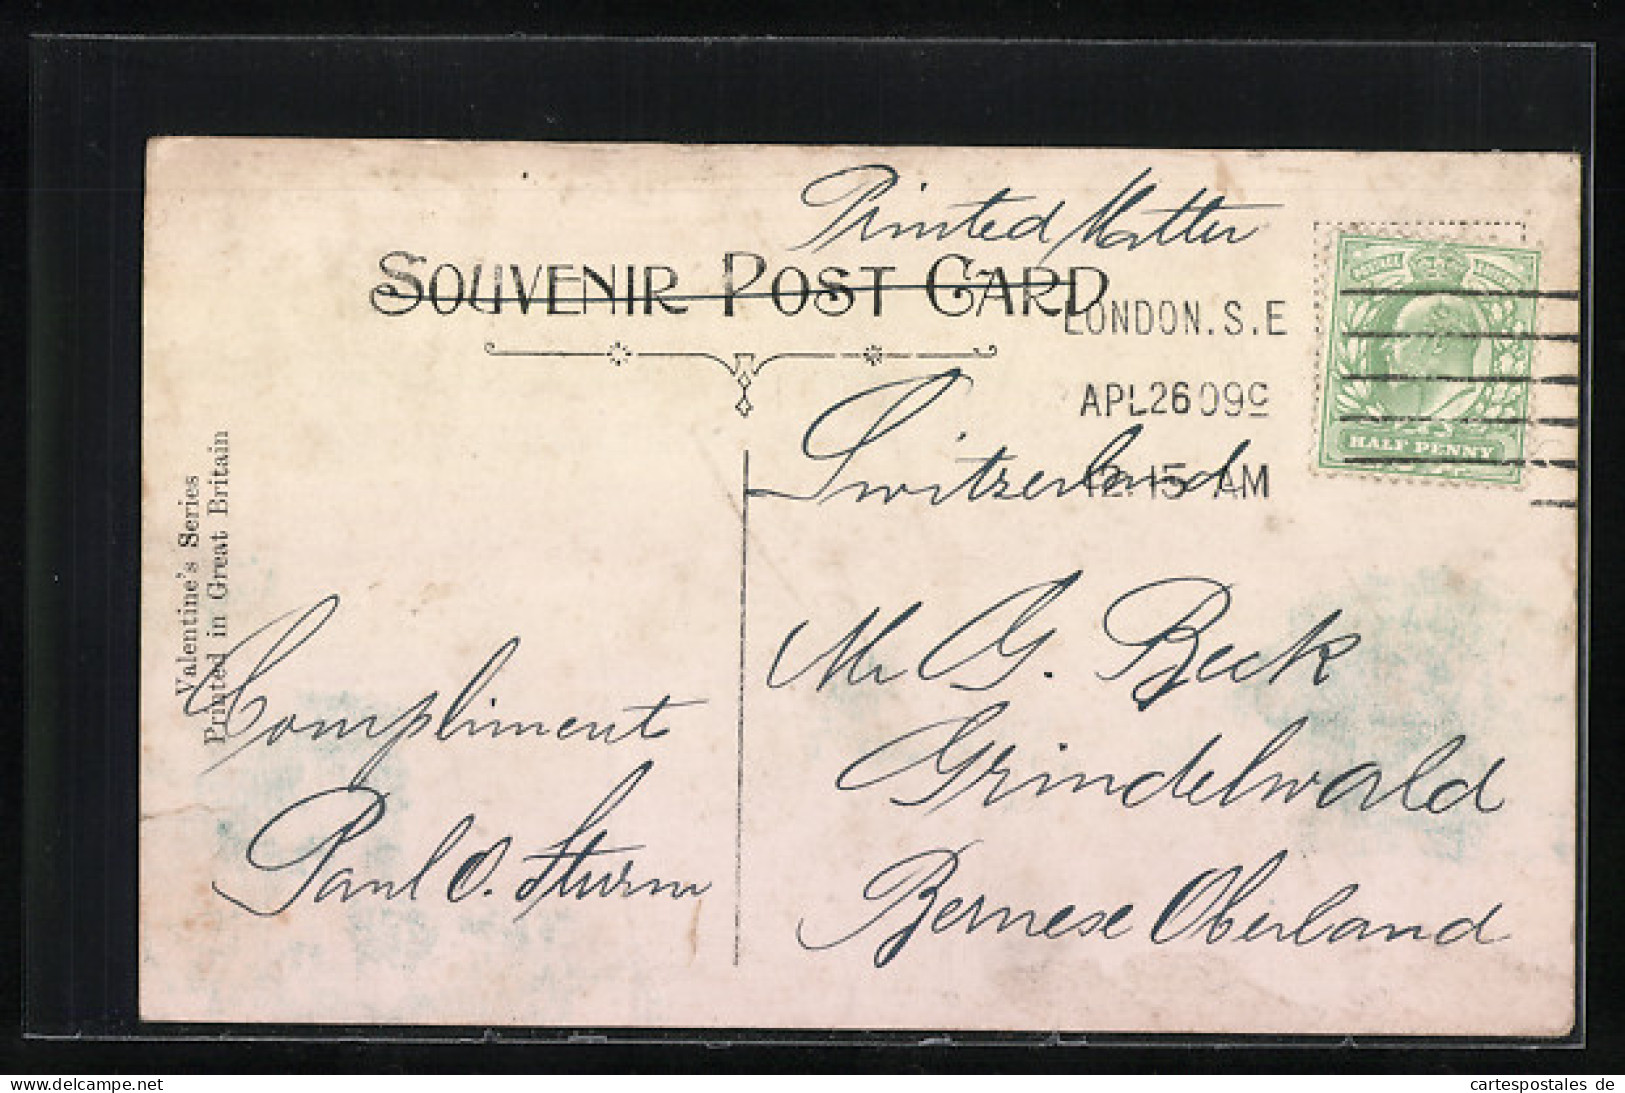 Printed Matter
SOUVENIR POST CARD
LONDON.S.E
APL 26 09
12.15 AM
POSTAGE REVENUE
HALF PENNY
Switzerland
Valentine's Series
Printed in Great Britain
Compliment
Paul O. Sturm
Mr G. Beck
Grindelwald
Bernese Oberland
cartespostales de